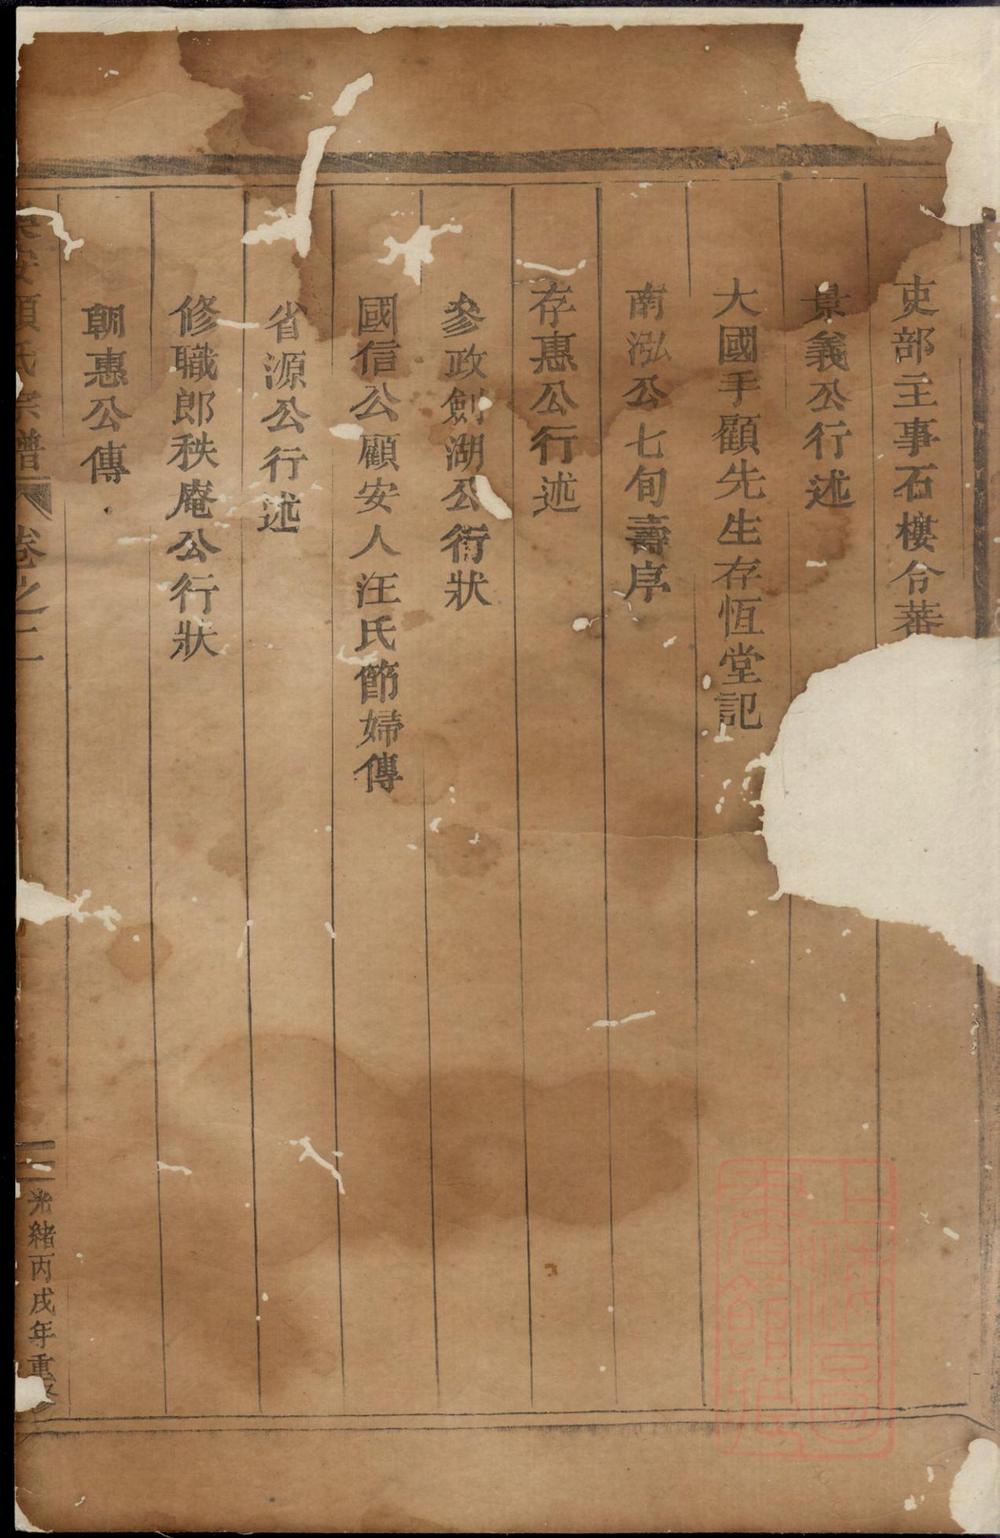 吏部主事石樓令蕃
景義公行述
大國手顧先生存恆堂記
南泓公七旬壽序
存惠公行述
參政劍湖公行狀
國信公顧安人汪氏節婦傳
省源公行述
修職郎秩庵公行狀
朝惠公傳
安顧氏宗譜 卷之二
光緒丙戌年重修
上海圖書館藏